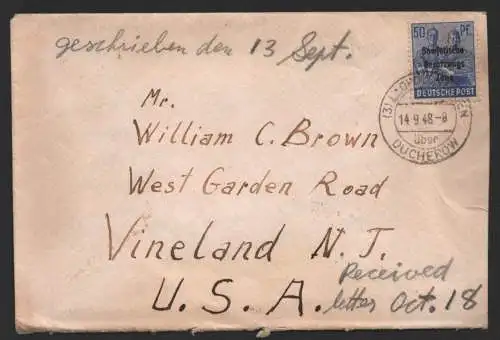 geschrieben den 13 Sept.
50 Pf.
Sowjetische
Besatzungs
Zone
DEUTSCHE POST
14.9.48.-8
über
DUCHEROW
Mr.
William C. Brown
West Garden Road
Vineland N. J.
U. S. A.
Received
letter Oct. 18